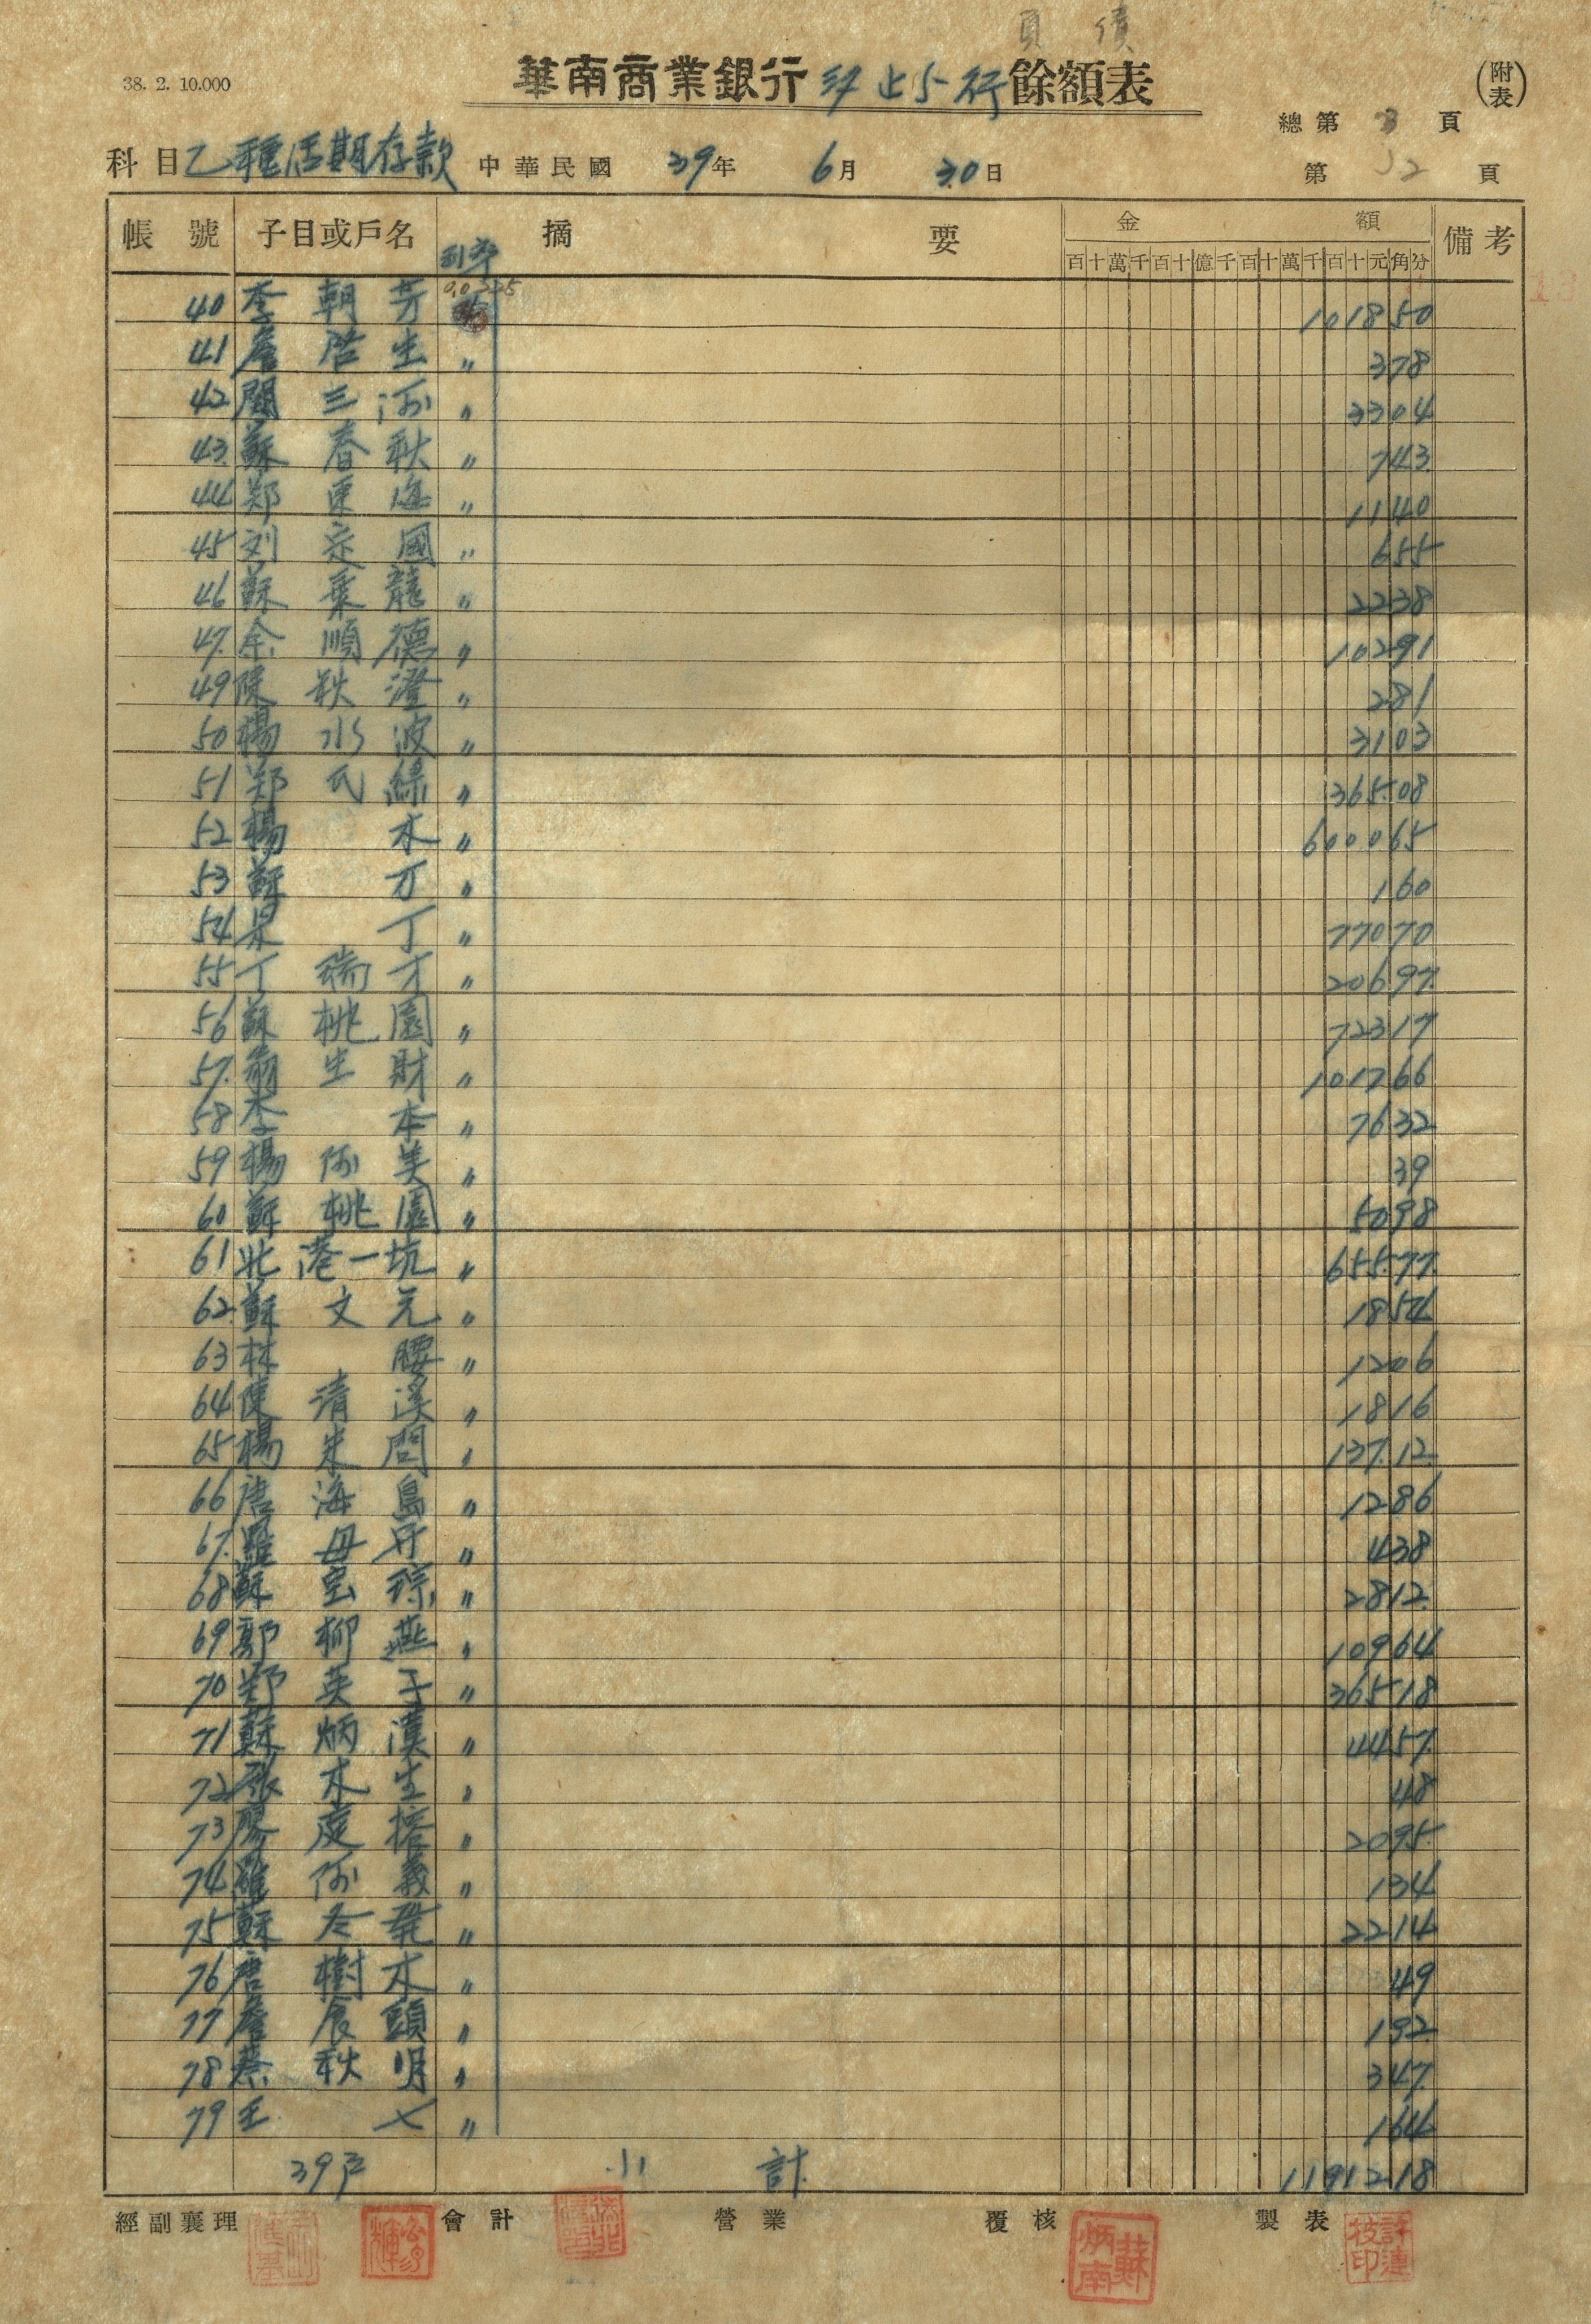 負債
38. 2. 10.000
華南商業銀行汐止分行餘額表
(附表)
總第 3 頁
科目乙種活期存款 中華民國 39年 6月 30日
第 頁
帳號 子目或戶名 摘要 金額 備考
利率
百十萬千百十億千百十萬千百十元角分
40 李朝芳 101850
41 詹啓生 〃 378
42 闕三河 〃 3304
43 蘇春秋 〃 743
44 郑東海 〃 1140
45 刘定國 〃 655
46 蘇乘龍 〃 2238
47 余順德 〃 10291
49 陳秋澄 〃 281
50 楊水波 〃 3103
51 郑氏綠 〃 36508
52 楊木 〃 600065
53 蘇万 〃 160
54 丁 〃 77070
55 丁瑞才 〃 20697
56 蘇桃園 〃 72317
57 翁生財 〃 101766
58 李本 〃 7632
59 楊阿美 〃 39
60 蘇桃園 〃 5098
61 北港一坑 〃 65577
62 蘇文元 〃 1854
63 林腰 〃 1206
64 陳清溪 〃 1816
65 楊朱問 〃 13712
66 唐海島 〃 1286
67 羅母仔 〃 438
68 蘇宝琮 〃 2812
69 郭柳燕 〃 10964
70 郑英子 〃 36518
71 蘇炳漢 〃 4457
72 張木生 〃 48
73 廖庭榕 〃 2095
74 阿義 〃 134
75 蘇冬 〃 2214
76 唐樹木 〃 49
77 詹食頭 〃 192
78 蔡秋明 〃 347
79 王七 〃 164
39戶 小計 1191218
經副襄理 會計 營業 覆核 製表
蘇炳南